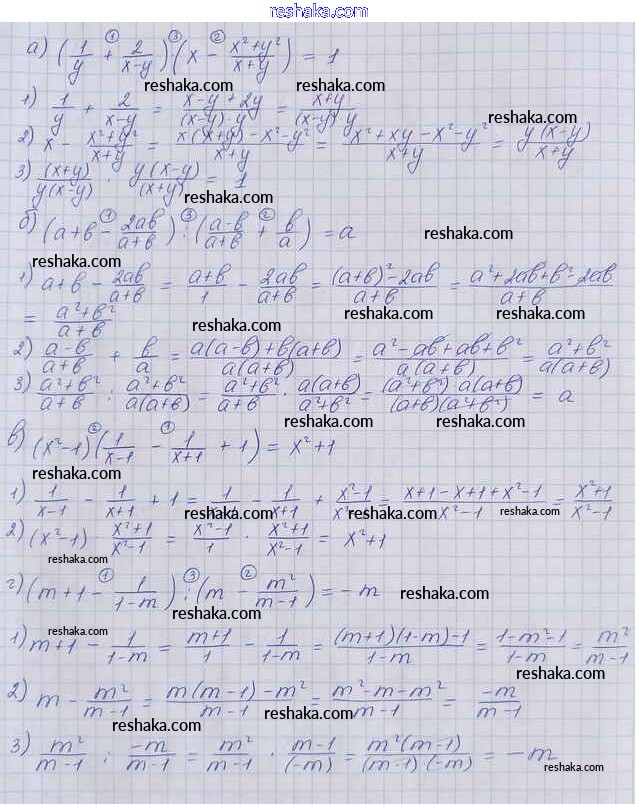 reshaka.com
а) (1/y + 2/(x-y)) (x - (x²+y²)/(x+y)) = 1
① ③ ②
reshaka.com
1) 1/y + 2/(x-y) = (x-y+2y)/((x-y)·y) = (x+y)/((x-y)·y)
reshaka.com
2) x - (x²+y²)/(x+y) = (x(x+y)-x²-y²)/(x+y) = (x²+xy-x²-y²)/(x+y) = y(x-y)/(x+y)
reshaka.com reshaka.com
3) (x+y)/(y(x-y)) · y(x-y)/(x+y) = 1
reshaka.com
б) (a+b - 2ab/(a+b)) : ((a-b)/(a+b) + b/a) = a
① ③ ②
reshaka.com
reshaka.com
1) a+b - 2ab/(a+b) = (a+b)/1 - 2ab/(a+b) = ((a+b)²-2ab)/(a+b) = (a²+2ab+b²-2ab)/(a+b)
= (a²+b²)/(a+b)
reshaka.com reshaka.com reshaka.com
2) (a-b)/(a+b) + b/a = (a(a-b)+b(a+b))/(a(a+b)) = (a²-ab+ab+b²)/(a(a+b)) = (a²+b²)/(a(a+b))
3) (a²+b²)/(a+b) : (a²+b²)/(a(a+b)) = (a²+b²)/(a+b) · a(a+b)/(a²+b²) = (a²+b²)·a(a+b)/((a+b)(a²+b²)) = a
reshaka.com reshaka.com
в) (x²-1)(1/(x-1) - 1/(x+1) + 1) = x²+1
② ①
reshaka.com
1) 1/(x-1) - 1/(x+1) + 1 = 1/(x-1) - 1/(x+1) + (x²-1)/(x²-1) = (x+1-x+1+x²-1)/(x²-1) = (x²+1)/(x²-1)
reshaka.com reshaka.com reshaka.com
2) (x²-1) · (x²+1)/(x²-1) = (x²-1)/1 · (x²+1)/(x²-1) = x²+1
reshaka.com
г) (m+1 - 1/(1-m)) : (m - m²/(m-1)) = -m
① ②
reshaka.com
reshaka.com
1) m+1 - 1/(1-m) = (m+1)/1 - 1/(1-m) = ((m+1)(1-m)-1)/(1-m) = (1-m²-1)/(1-m) = m²/(m-1)
reshaka.com reshaka.com
2) m - m²/(m-1) = (m(m-1)-m²)/(m-1) = (m²-m-m²)/(m-1) = -m/(m-1)
reshaka.com reshaka.com
3) m²/(m-1) : -m/(m-1) = m²/(m-1) · (m-1)/(-m) = m²(m-1)/((m-1)·(-m)) = -m
reshaka.com reshaka.com